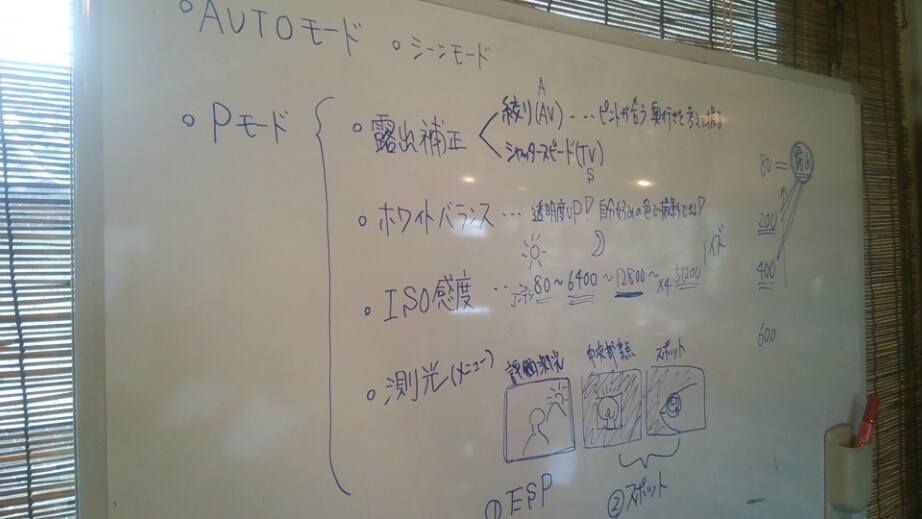 ○AUTOモード
○シーンモード
○Pモード
○露出補正
A
絞り(AV)…ピントが合う奥行きを考えて撮る
シャッタースピード(TV)
S
○ホワイトバランス…透明度UP! 自分好みの色で撮影できる!
○ISO感度…80~6400~12800~×4 51200
○測光(メニュー)
評価測光 中央部重点 スポット
①ESP ②スポット
80=
200
400
600